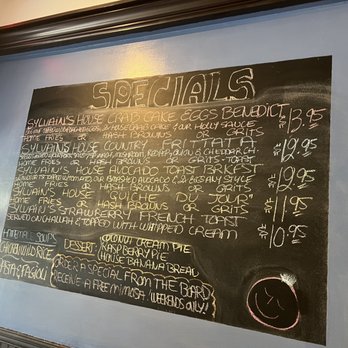 SPECIALS
SYLVAIN'S HOUSE CRAB CAKE EGGS BENEDICT $13.95
HOUSE CRAB CAKE & OUR HOLLY SAUCE
HOME FRIES OR HASH BROWNS OR GRITS
SYLVAIN'S HOUSE COUNTRY FRITTATA $12.95
HOME FRIES OR HASH BROWN OR GRITS - TOAST
SYLVAIN'S HOUSE AVOCADO TOAST BRKFST $12.95
AVOCADO & 2 EGGS ANY STYLE
HOME FRIES OR HASH BROWNS OR GRITS
SYLVAIN'S HOUSE QUICHE DU JOUR $11.95
HOME FRIES OR HASH BROWNS OR GRITS TOAST
SYLVAIN'S STRAWBERRY FRENCH TOAST $10.95
SERVED ON CHALLAH & TOPPED WITH WHIPPED CREAM
HOMEMADE SOUPS
CHICKEN WILD RICE
PASTA & FAGIOLI
DESSERT
COCONUT CREAM PIE
RASPBERRY PIE
HOUSE BANANA BREAD
ORDER A SPECIAL FROM THE BOARD
RECEIVE A FREE MIMOSA! (WEEKENDS ONLY!!)